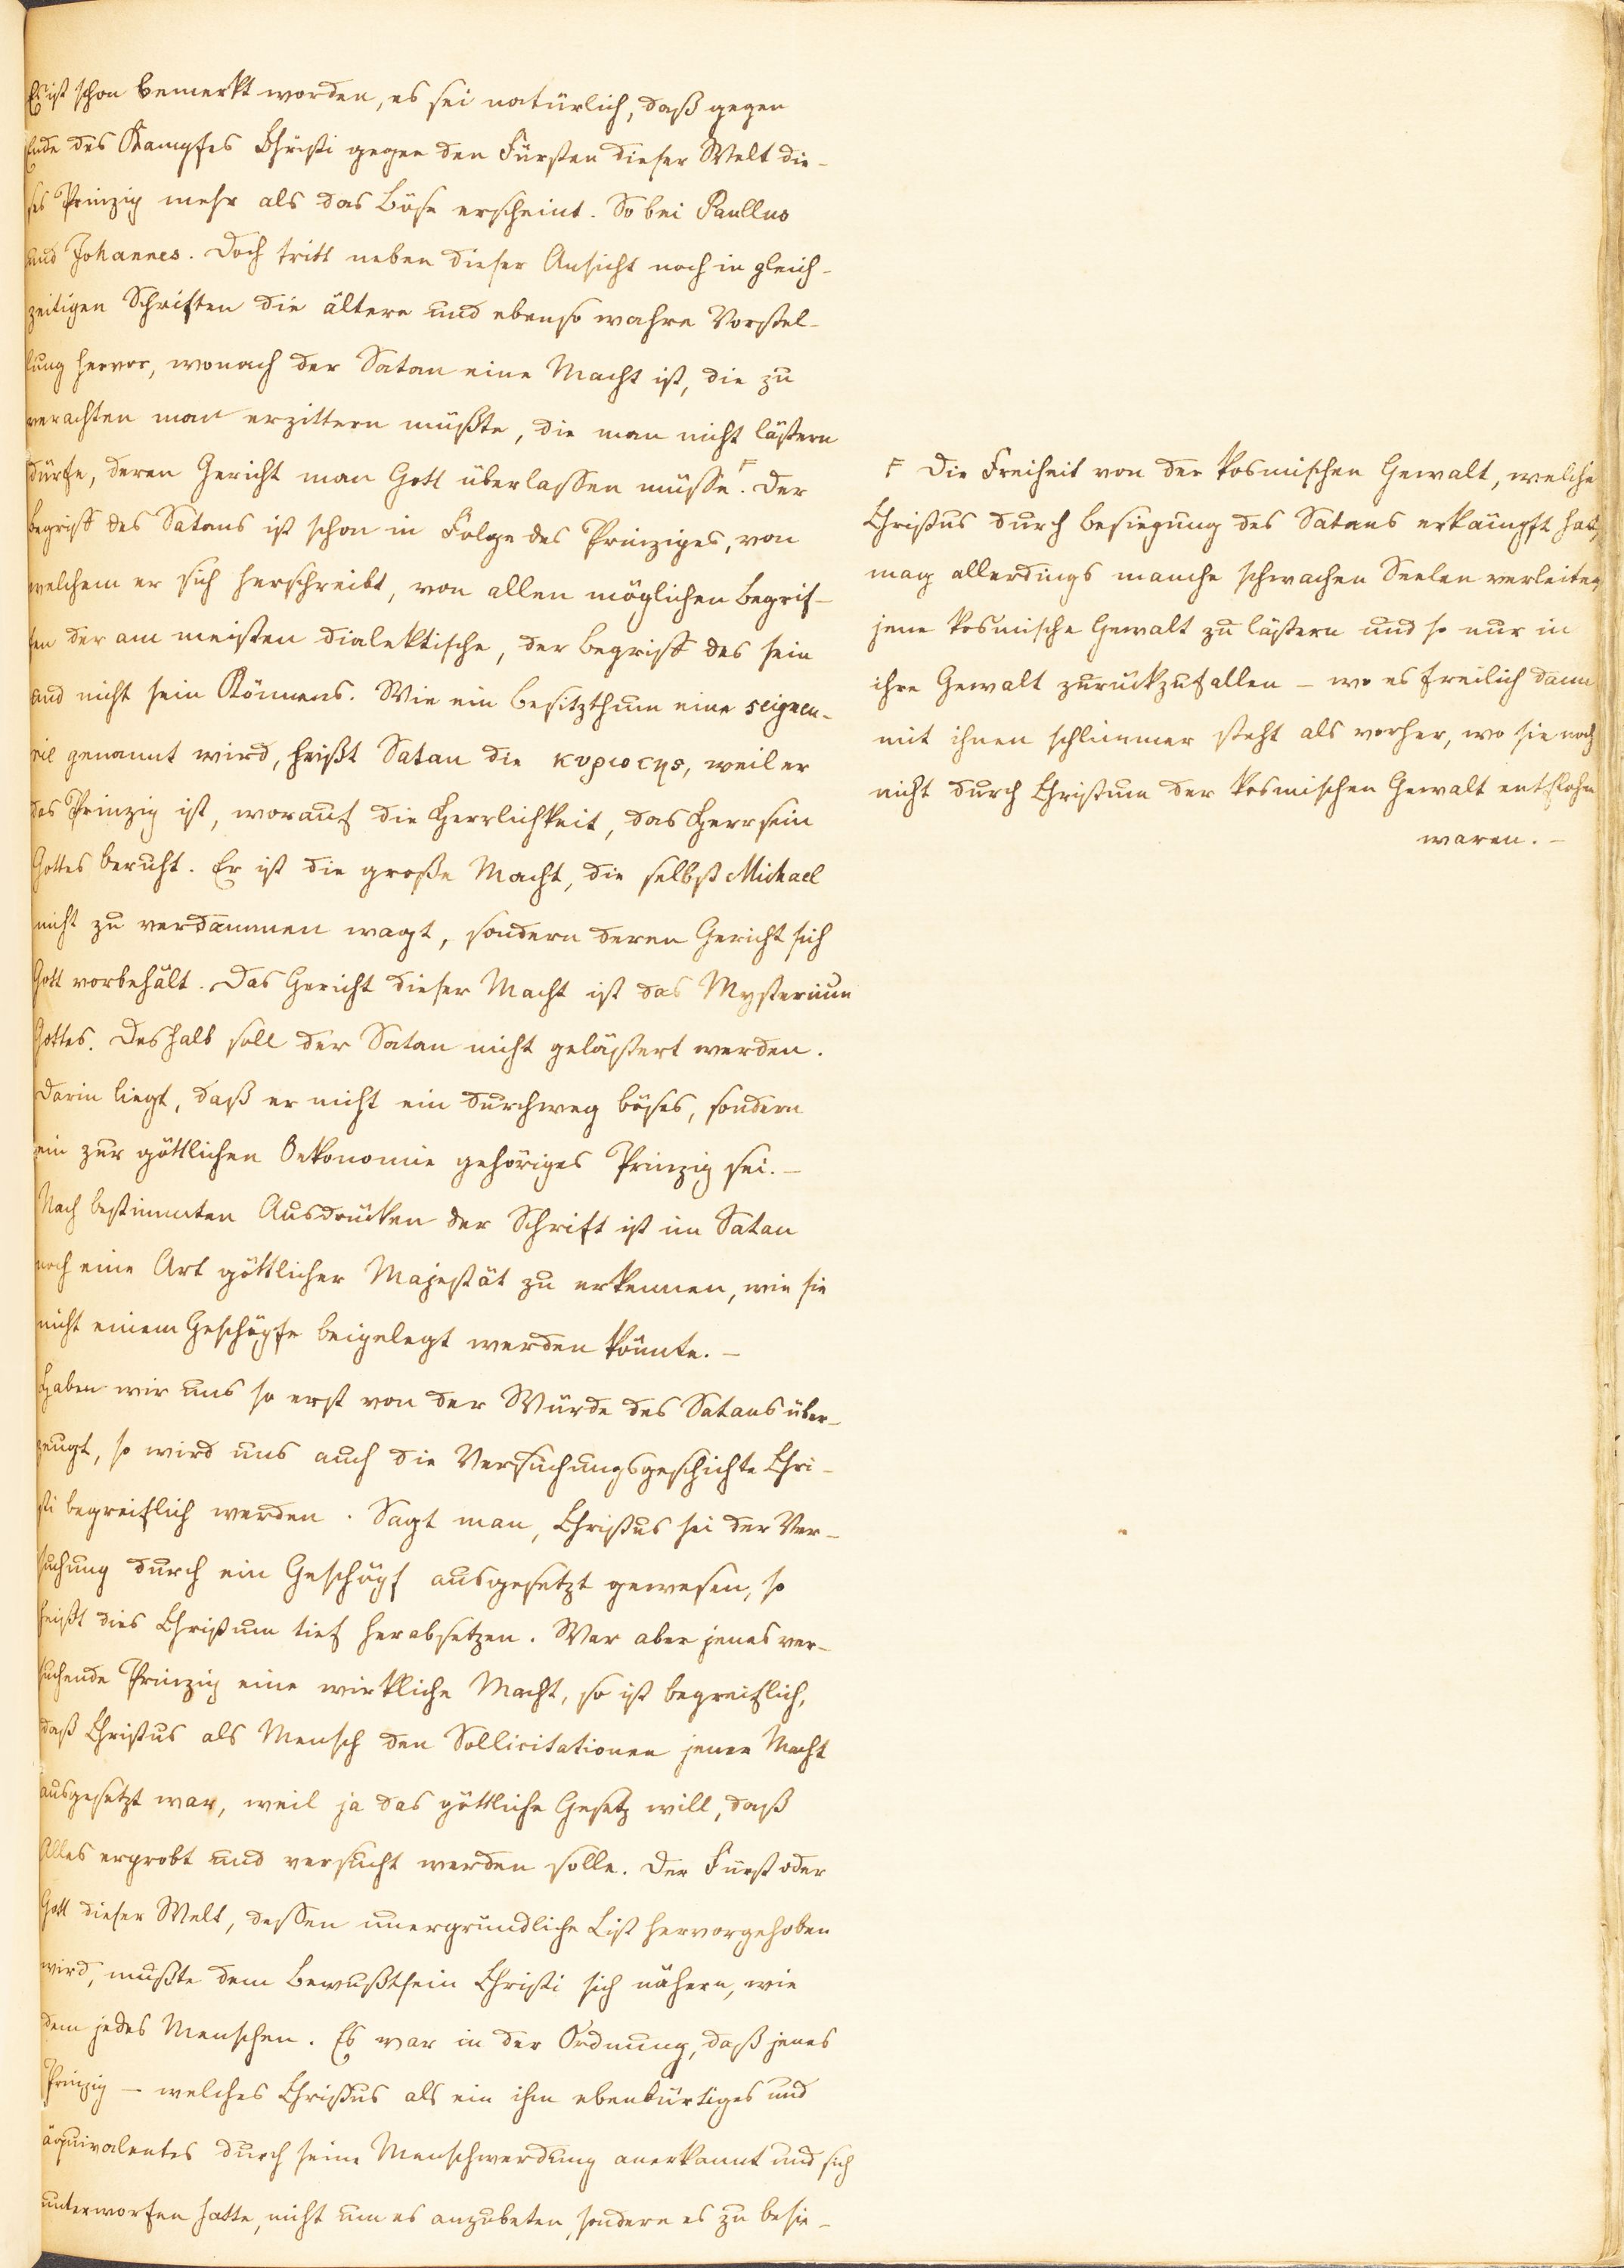 Es ist schon bemerkt worden, es sei natürlich, daß gegen
Ende des Kampfes Christi gegen den Fürsten dieser Welt die-
ses Prinzip mehr als das Böse erscheint. So bei Paullus
und Johannes. Doch tritt neben dieser Ansicht noch in gleich-
zeitigen Schriften die ältere und ebenso wahre Vorstel-
lung hervor, wonach der Satan eine Macht ist, die zu
verachten man erzittern müßte, die man nicht lästern
dürfe, deren Gericht man Gott überlassen müsse.⌜ Der
Begriff des Satans ist schon in Folge des Prinzipes, von
welchem er sich herschreibt, von allen möglichen Begrif-
fen der am meisten dialektische, der Begriff des sein
und nicht sein Könnens. Wie ein Besitzthum eine seigneu-
rie genannt wird, heißt Satan die κυριοτης, weil er
das Prinzip ist, worauf die Herrlichkeit, das Herrsein
Gottes beruht. Er ist die große Macht, die selbst Michael
nicht zu verdammen wagt, sondern deren Gericht sich
Gott vorbehält. Das Gericht dieser Macht ist das Mysterium
Gottes. Deshalb soll der Satan nicht gelästert werden.
Darin liegt, daß er nicht ein durchweg böses, sondern
ein zur göttlichen Oekonomie gehöriges Prinzip sei. –
Nach bestimmten Ausdrücken der Schrift ist im Satan
noch eine Art göttlicher Majestät zu erkennen, wie sie
nicht einem Geschöpfe beigelegt werden könnte. –
Haben wir uns so erst von der Würde des Satans über-
zeugt, so wird uns auch die Versuchungsgeschichte Chri-
sti begreiflich werden. Sagt man, Christus sei der Ver-
suchung durch ein Geschöpf ausgesetzt gewesen, so
heißt dies Christum tief herabsetzen. War aber jenes ver-
suchende Prinzip eine wirkliche Macht, so ist begreiflich,
daß Christus als Mensch den Sollicitationen jener Macht
ausgesetzt war, weil ja das göttliche Gesetz will, daß
Alles erprobt und versucht werden solle. Der Fürst oder
Gott dieser Welt, dessen unergründliche List hervorgehoben
wird, mußte dem Bewußtsein Christi sich nähern, wie
dem jedes Menschen. Es war in der Ordnung, daß jenes
Prinzip – welches Christus als ein ihm ebenbürtiges und
äquivalentes durch seine Menschwerdung anerkannt und sich
unterworfen hatte, nicht um es anzubeten, sondern es zu besie-
⌜ Die Freiheit von der kosmischen Gewalt, welche
Christus durch Besiegung des Satans erkämpft hat,
mag allerdings manche schwachen Seelen verleiten,
jene kosmische Gewalt zu lästern und so nur in
ihre Gewalt zurückzufallen – wo es freilich dann
mit ihnen schlimmer steht als vorher, wo sie noch
nicht durch Christum der kosmischen Gewalt entflohn
waren. –